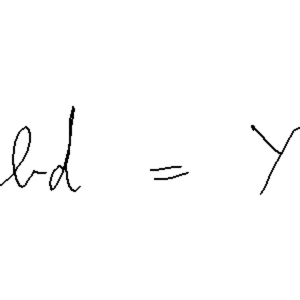 bd = Y